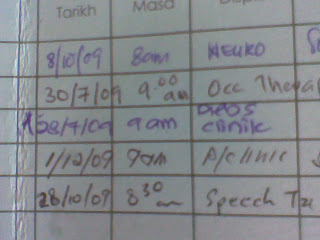 Tarikh Masa
8/10/09 8am NEURO
30/7/09 9.00 am Occ Therap
28/7/09 9am clinic
1/12/09 9am P/clinic
28/10/09 8 30 am Speech